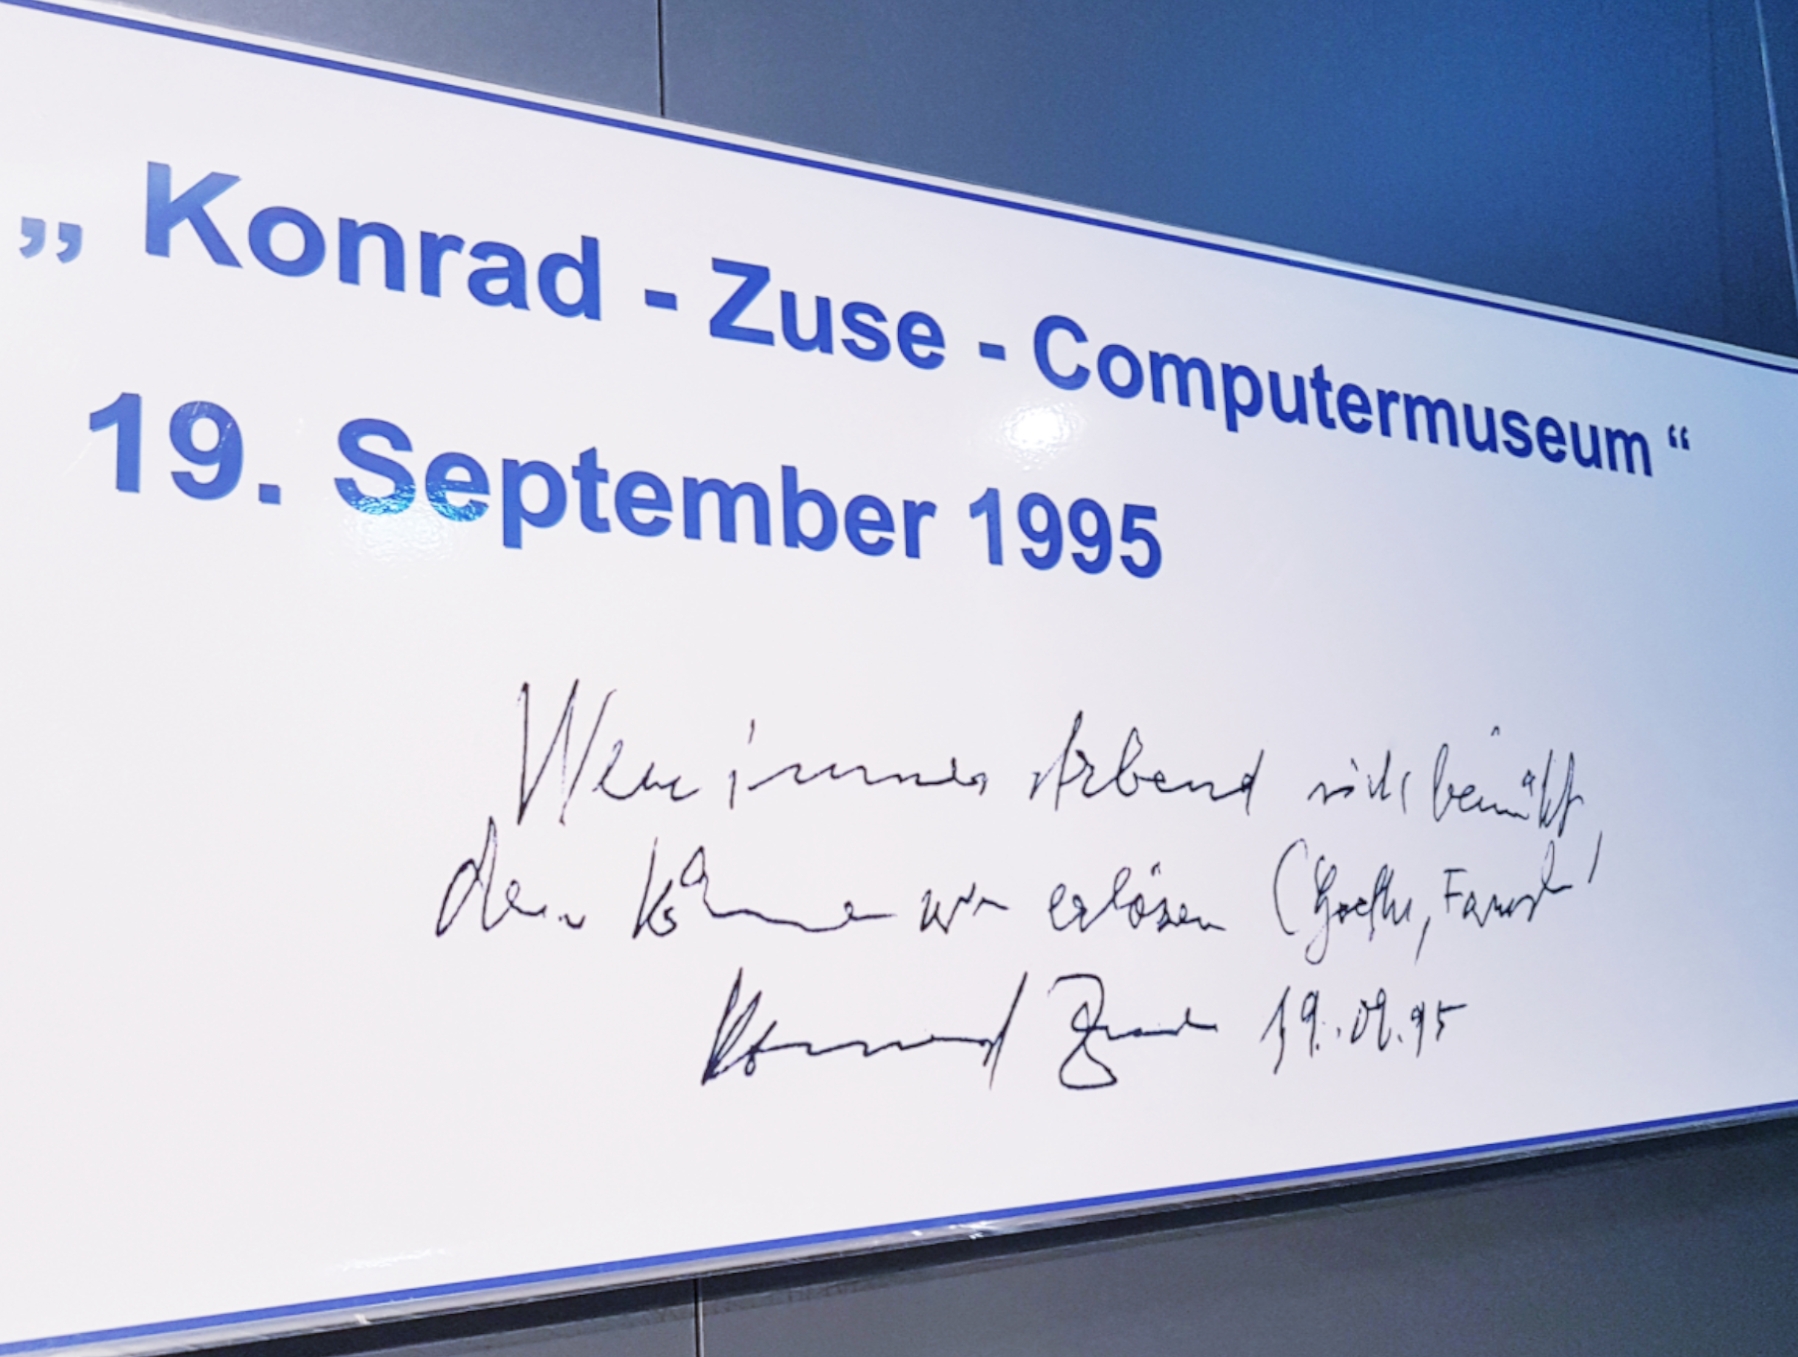 „ Konrad - Zuse - Computermuseum “
19. September 1995
Wer immer strebend sich bemüht,
den können wir erlösen (Goethe, Faust)
Konrad Zuse 19.09.95